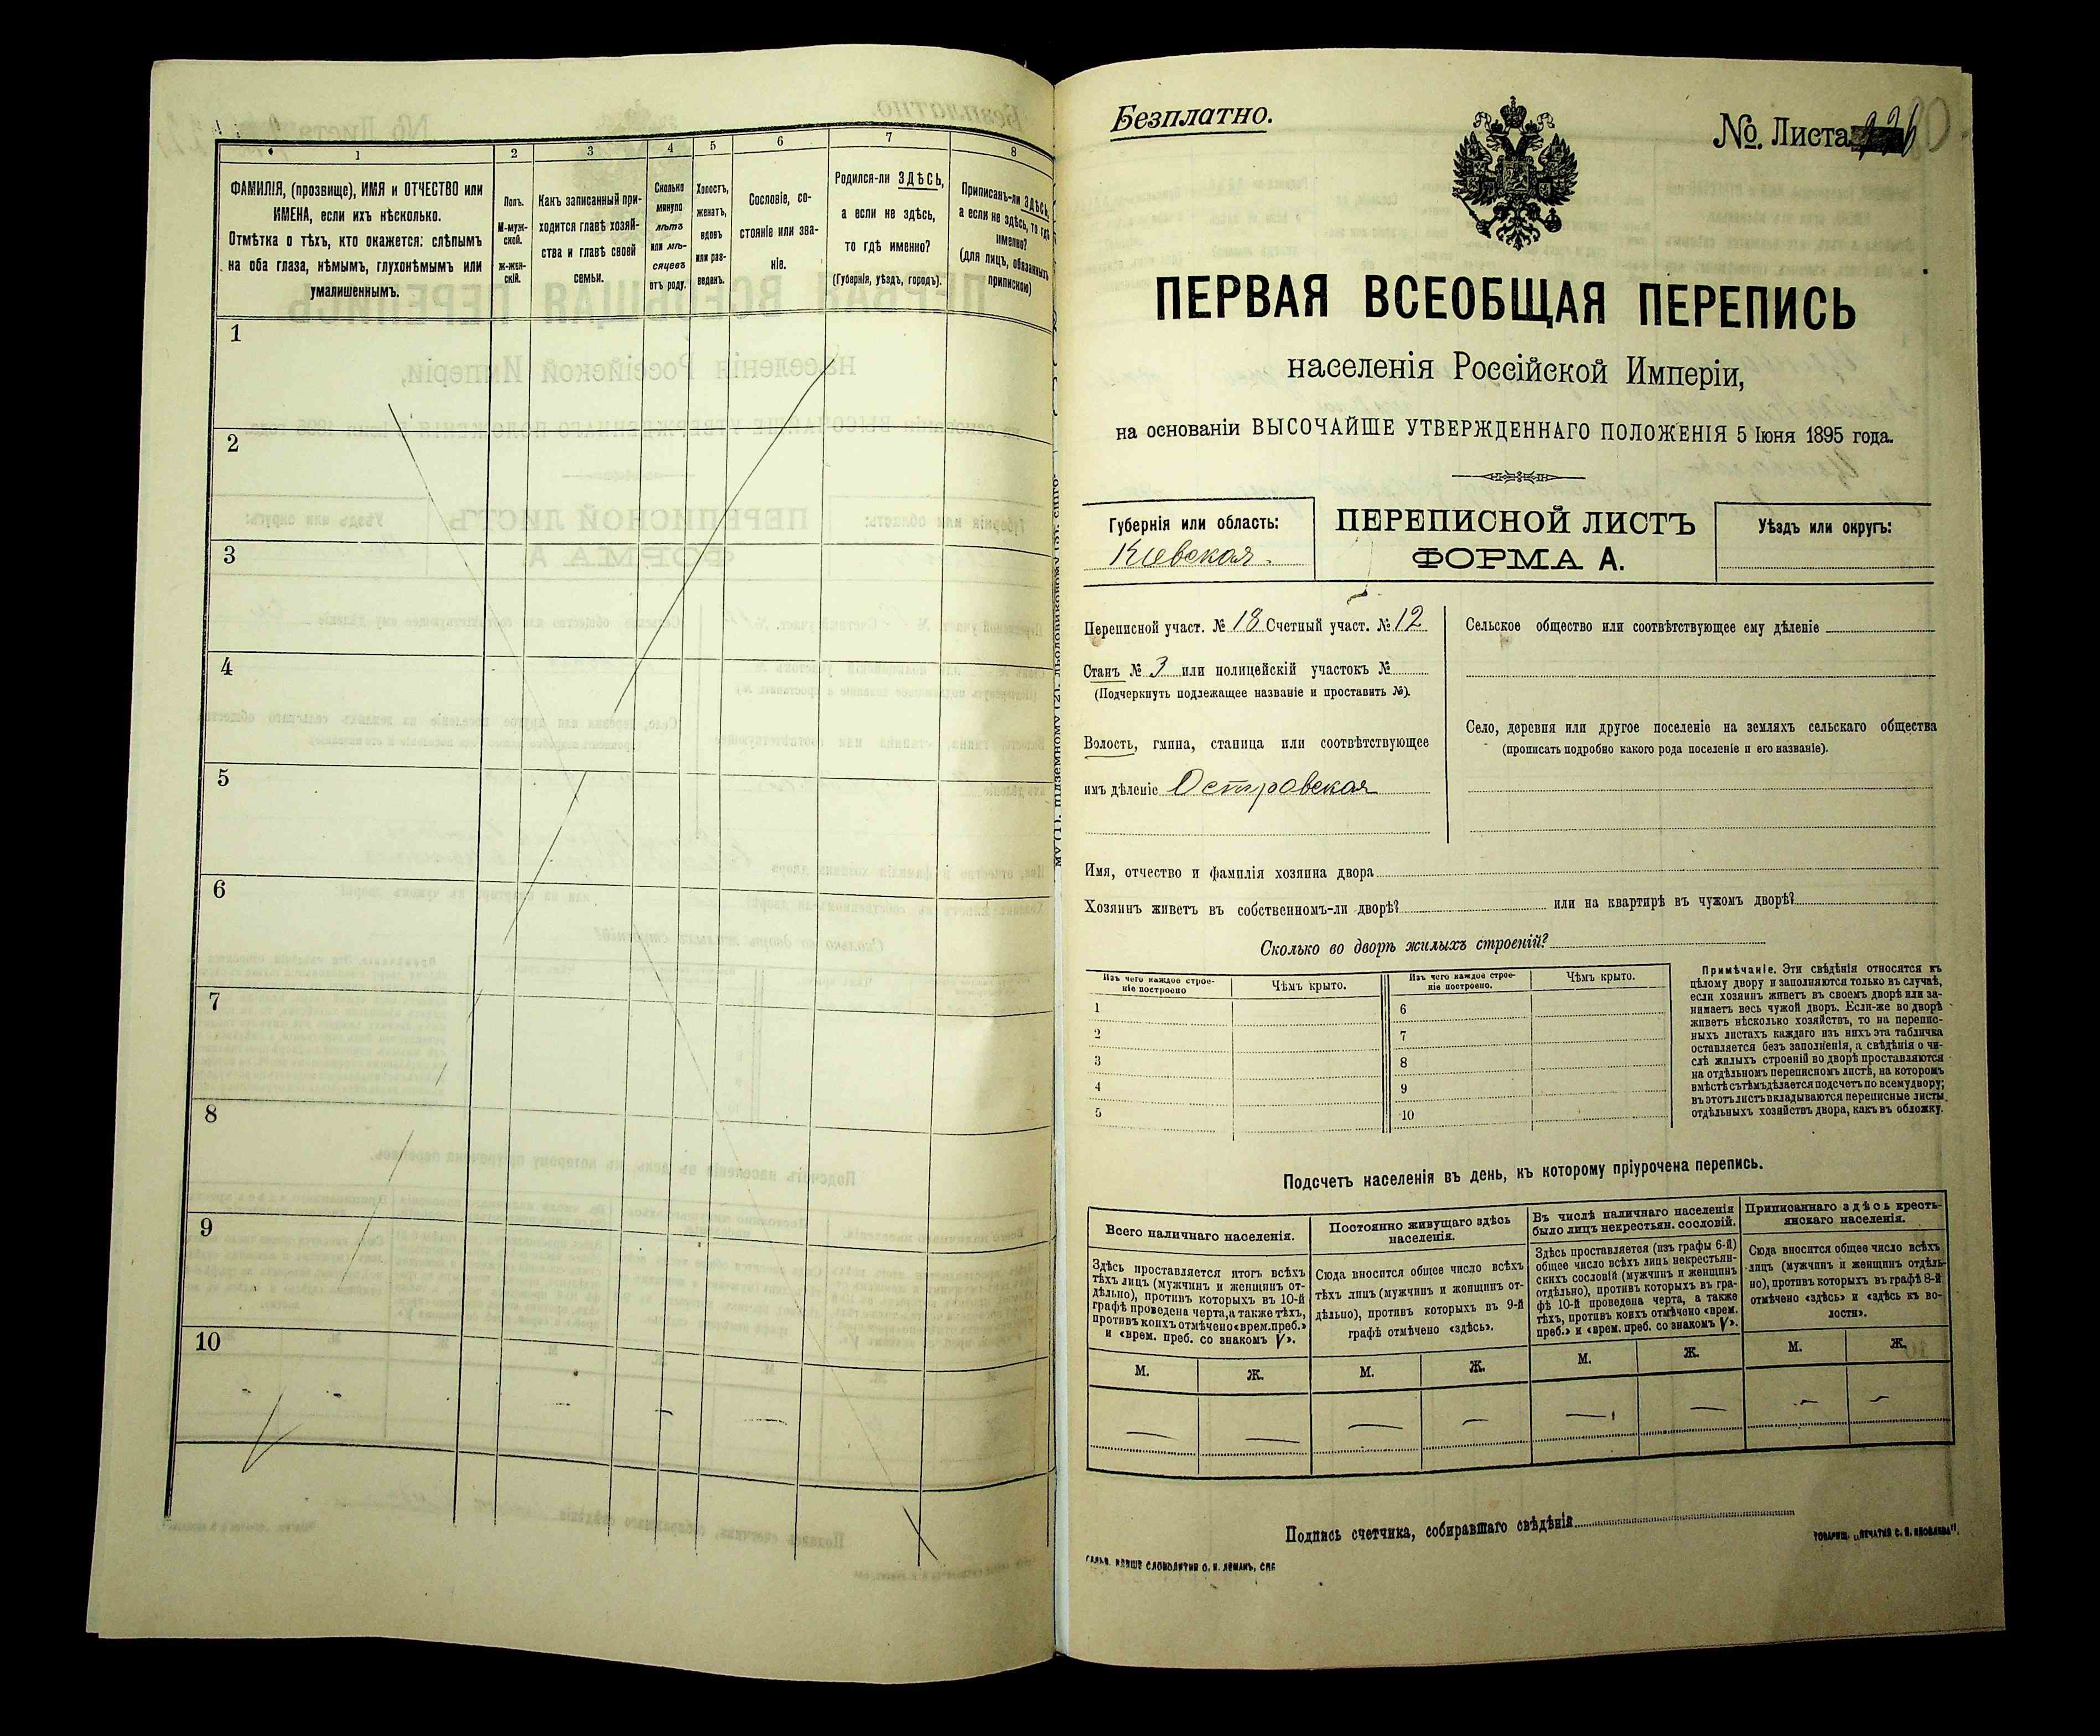 1 2 3 4 5 6 7 8
ФАМИЛІЯ, (прозвище), ИМЯ и ОТЧЕСТВО или
ИМЕНА, если ихъ нѣсколько.
Отмѣтка о тѣхъ, кто окажется: слѣпымъ
на оба глаза, нѣмымъ, глухонѣмымъ или
умалишеннымъ.
Полъ.
М-муж-
ской.
ж-жен-
скій.
Какъ записанный при-
ходится главѣ хозяй-
ства и главѣ своей
семьи.
Сколько
минуло
лѣтъ
или мѣ-
сяцевъ
отъ роду.
Холостъ,
женатъ,
вдовъ
или раз-
веденъ.
Сословіе, со-
стояніе или зва-
ніе.
Родился-ли ЗДѢСЬ,
а если не здѣсь,
то гдѣ именно?
(Губернія, уѣздъ, городъ).
Приписанъ-ли ЗДѢСЬ,
а если не здѣсь, то гдѣ
именно?
(для лицъ, обязанныхъ
припискою)
1
2
3
4
5
6
7
8
9
10
Безплатно.
№ Листа
ПЕРВАЯ ВСЕОБЩАЯ ПЕРЕПИСЬ
населенія Россійской Имперіи,
на основаніи ВЫСОЧАЙШЕ УТВЕРЖДЕННАГО ПОЛОЖЕНІЯ 5 Іюня 1895 года.
Губернія или область:
Кіевская.
ПЕРЕПИСНОЙ ЛИСТЪ
ФОРМА А.
Уѣздъ или округъ:
Переписной участ. № 18 Счетный участ. № 12
Станъ № 3 или полицейскій участокъ №
(Подчеркнуть подлежащее названіе и проставить №).
Волость, гмина, станица или соотвѣтствующее
имъ дѣленіе Островская
Сельское общество или соотвѣтствующее ему дѣленіе
Село, деревня или другое поселеніе на земляхъ сельскаго общества
(прописать подробно какого рода поселеніе и его названіе).
Имя, отчество и фамилія хозяина двора
Хозяинъ живетъ въ собственномъ-ли дворѣ? или на квартирѣ въ чужомъ дворѣ?
Сколько во дворѣ жилыхъ строеній?
Изъ чего каждое строе-
ніе построено
Чѣмъ крыто.
Изъ чего каждое строе-
ніе построено.
Чѣмъ крыто.
1 6
2 7
3 8
4 9
5 10
Примѣчаніе. Эти свѣдѣнія относятся къ
цѣлому двору и заполняются только въ случаѣ,
если хозяинъ живетъ въ своемъ дворѣ или за-
нимаетъ весь чужой дворъ. Если-же во дворѣ
живетъ нѣсколько хозяйствъ, то на перепис-
ныхъ листахъ каждаго изъ нихъ эта табличка
оставляется безъ заполненія, а свѣдѣнія о чи-
слѣ жилыхъ строеній во дворѣ проставляются
на отдѣльномъ переписномъ листѣ, на которомъ
вмѣстѣ съ тѣмъ дѣлается подсчетъ по всему двору;
въ этотъ листъ вкладываются переписные листы
отдѣльныхъ хозяйствъ двора, какъ въ обложку.
Подсчетъ населенія въ день, къ которому пріурочена перепись.
Всего наличнаго населенія.
Постоянно живущаго здѣсь
населенія.
Въ числѣ наличнаго населенія
было лицъ некрестьян. сословій.
Приписаннаго здѣсь кресть-
янскаго населенія.
Здѣсь проставляется итогъ всѣхъ
тѣхъ лицъ (мужчинъ и женщинъ от-
дѣльно), противъ которыхъ въ 10-й
графѣ проведена черта, а также тѣхъ,
противъ коихъ отмѣчено «врем. преб.»
и «врем. преб. со знакомъ V».
Сюда вносится общее число всѣхъ
тѣхъ лицъ (мужчинъ и женщинъ от-
дѣльно), противъ которыхъ въ 9-й
графѣ отмѣчено «здѣсь».
Здѣсь проставляется (изъ графы 6-й)
общее число всѣхъ лицъ некрестьян-
скихъ сословій (мужчинъ и женщинъ
отдѣльно), противъ которыхъ въ гра-
фѣ 10-й проведена черта, а также
тѣхъ, противъ коихъ отмѣчено «врем.
преб.» и «врем. преб. со знакомъ V».
Сюда вносится общее число всѣхъ
лицъ (мужчинъ и женщинъ отдѣль-
но), противъ которыхъ въ графѣ 8-й
отмѣчено «здѣсь» и «здѣсь къ во-
лости».
М. Ж. М. Ж. М. Ж. М. Ж.
Подпись счетчика, собиравшаго свѣдѣнія
СЛОВОЛИТНИ О. И. ЛЕМАНЪ, СПБ
ТОВАРИЩ. „ПЕЧАТНЯ С. П. ЯКОВЛЕВА".